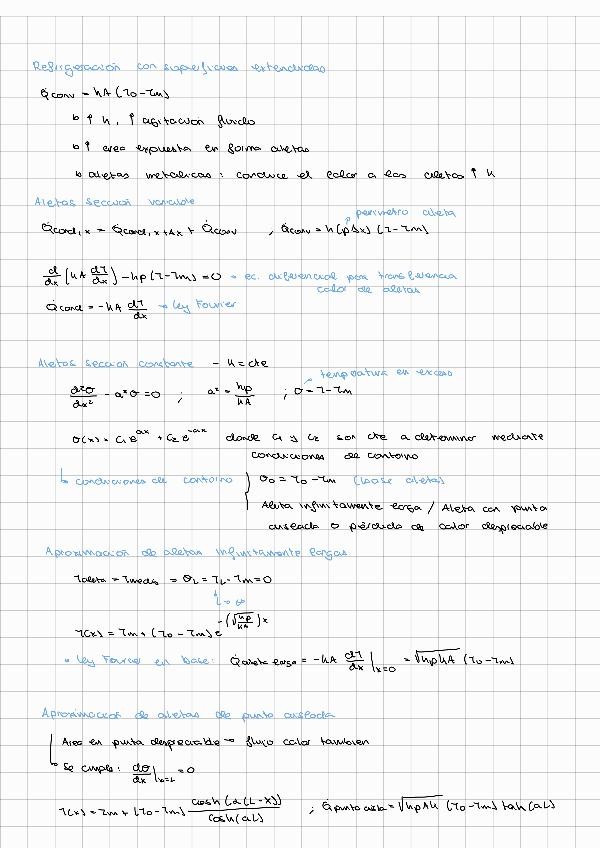 Refrigeración con superficies extendidas
Q̇conv = hA (T0 - Tm)
↳ ↑ h, ↑ agitación fluido
↳ ↑ area expuesta en forma aletas
↳ aletas metálicas: conduce el calor a las aletas ↑ k
Aletas sección variable
perímetro aleta
Q̇cond,x = Q̇cond,x+Δx + Q̇conv , Q̇conv = h(pΔx) (T-Tm)
d/dx (kA dT/dx) - hp(T-Tm) = 0 → ec. diferencial para transferencia
calor de aletas
Q̇cond = -kA dT/dx → ley Fourier
Aletas sección constante - k = cte
temperatura en exceso
d²θ/dx² - a²θ = 0 ; a² = hp/kA ; θ = T-Tm
θ(x) = C1 e^ax + C2 e^-ax donde C1 y C2 son cte a determinar mediante
condiciones de contorno
↳ condiciones de contorno { θ0 = T0 - Tm (base aletas)
Aleta infinitamente larga / Aleta con punta
aislada o pérdida de calor despreciable
Aproximación de aletas infinitamente largas
Taleta = Tmedio = θL = TL - Tm = 0
L→∞
T(x) = Tm + (T0 - Tm) e^-(√(hp/kA))x
• ley Fourier en base: Q̇aleta larga = -kA dT/dx |x=0 = √hpkA (T0-Tm)
Aproximación de aletas de punta aislada
Area en punta despreciable → flujo calor también
↳ Se cumple: dθ/dx |x=L = 0
T(x) = Tm + (T0 - Tm) cosh(a(L-x))/cosh(aL) ; Q̇punta aisla = √hpAk (T0-Tm) tah(aL)